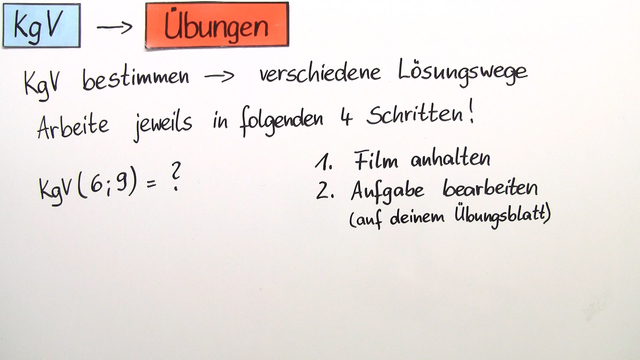 KgV → Übungen
KgV bestimmen → verschiedene Lösungswege
Arbeite jeweils in folgenden 4 Schritten!
KgV(6;9) = ?
1. Film anhalten
2. Aufgabe bearbeiten
(auf deinem Übungsblatt)